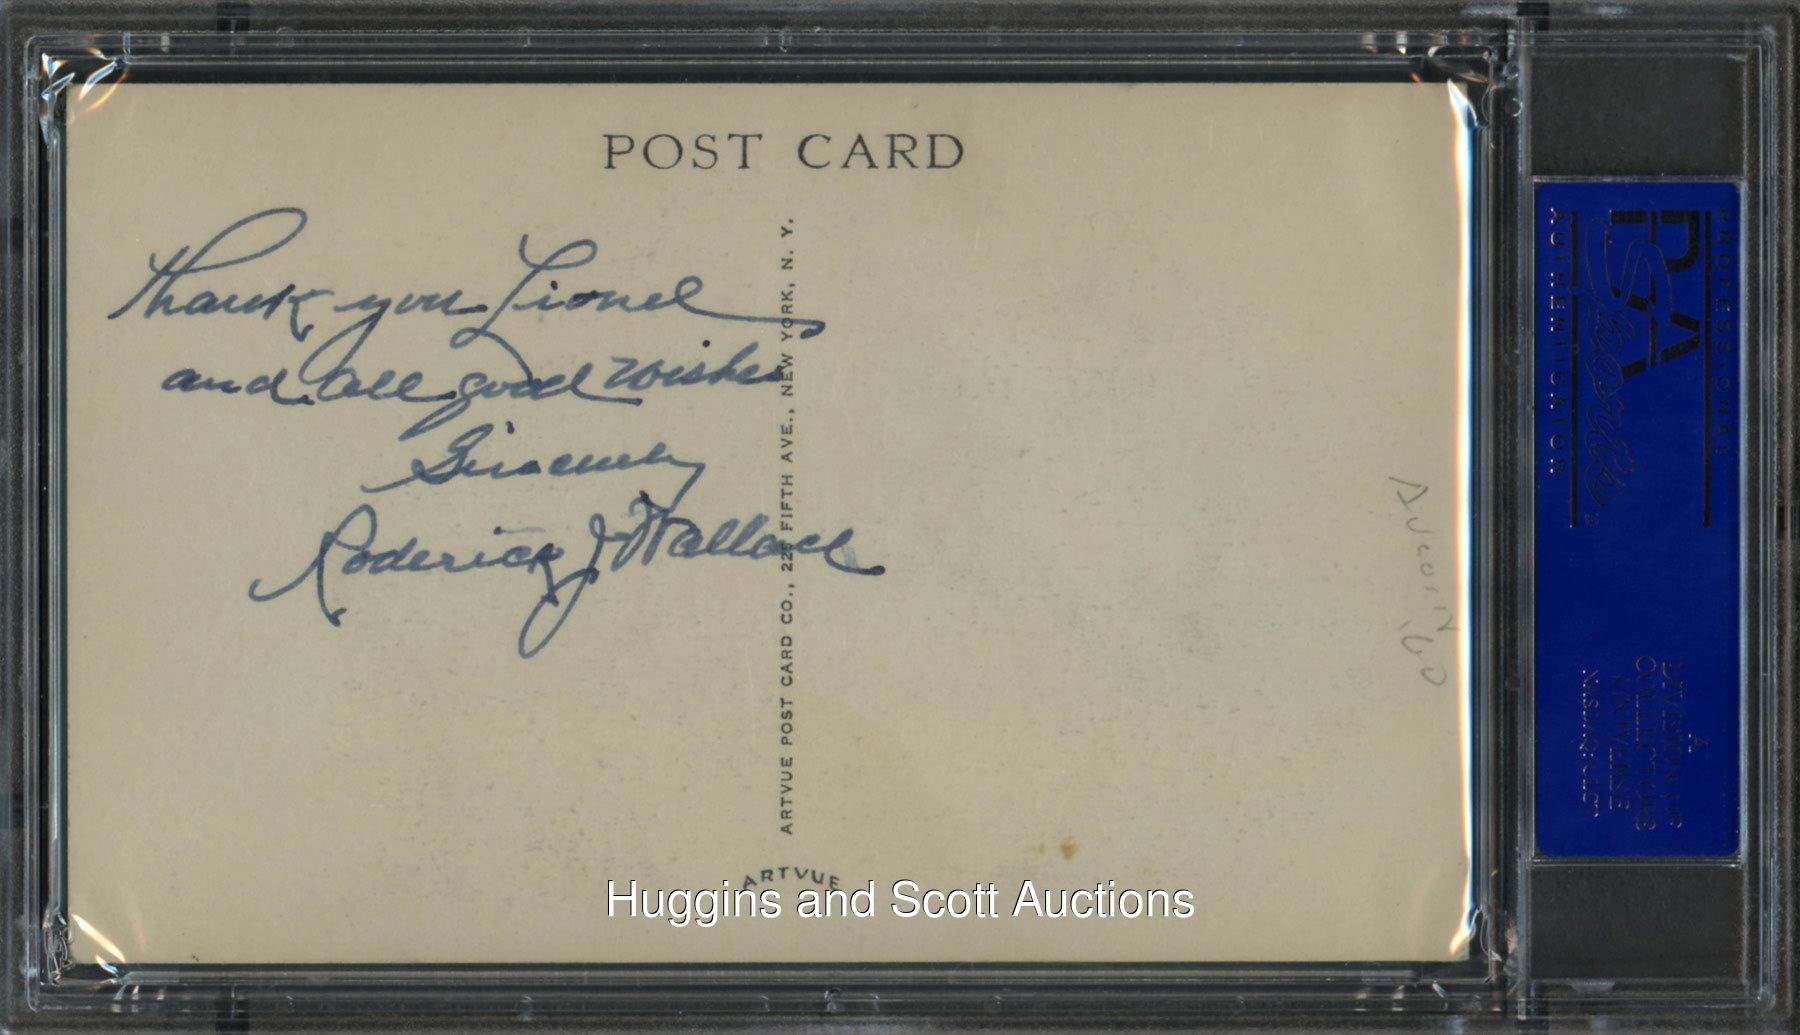 POST CARD
Thank you Lionel
and all good wishes
Sincerely
Roderick J Wallace
ARTVUE POST CARD CO., 225 FIFTH AVE., NEW YORK, N. Y.
ARTVUE
Huggins and Scott Auctions
PROFESSIONAL
PSA
AUTHENTICATOR
A
DIVISION OF
COLLECTORS
UNIVERSE
NASDAQ: CLCT